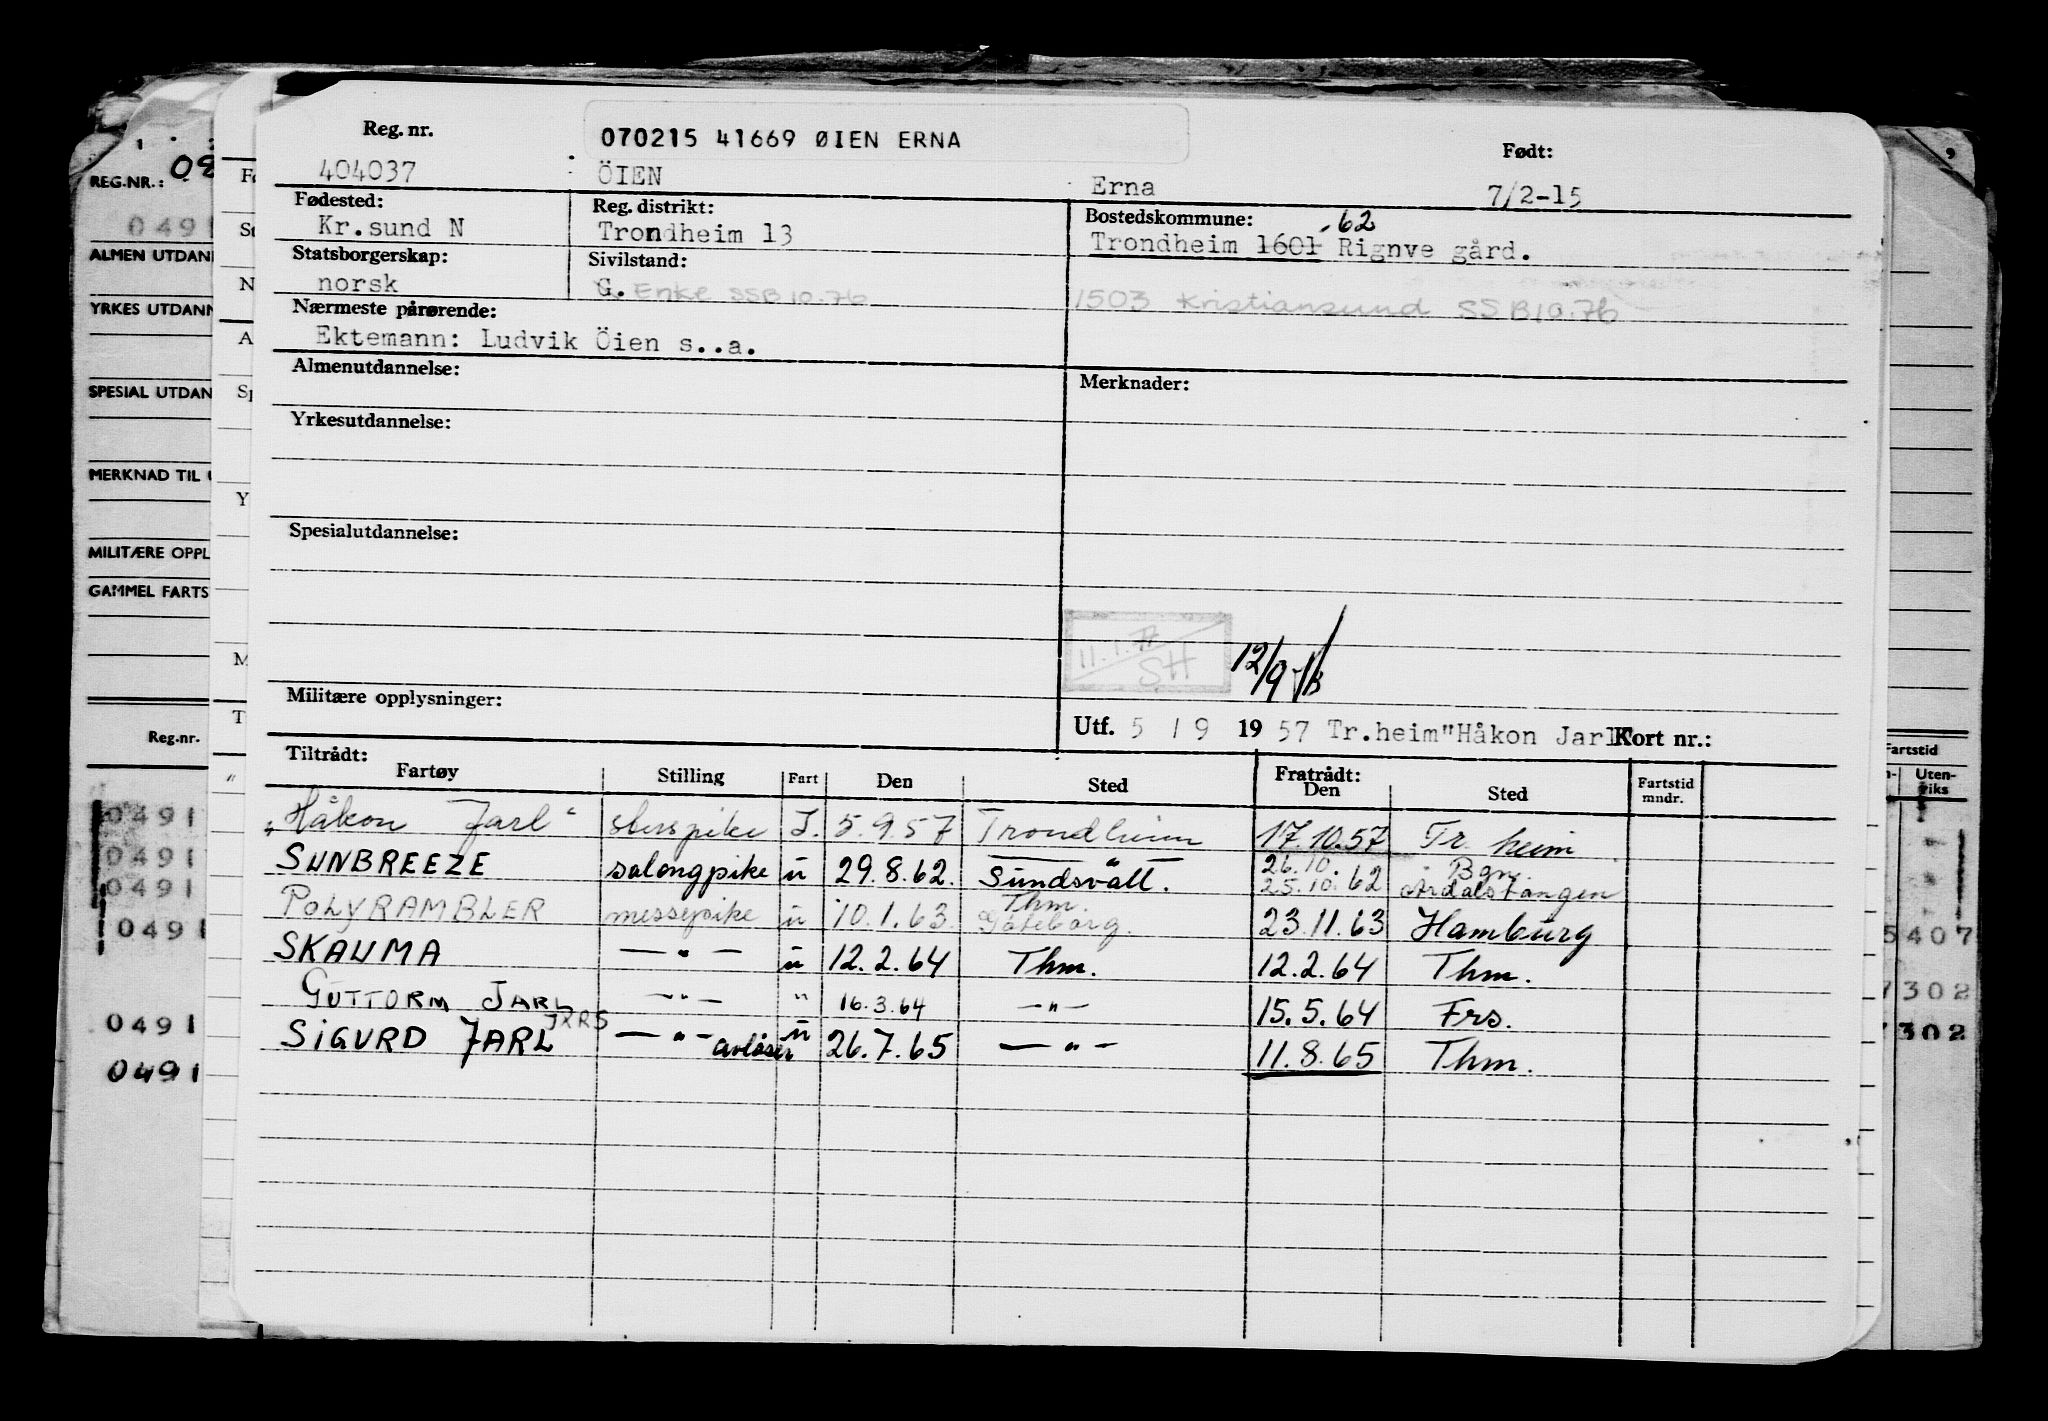 070215 41669 ØIEN ERNA
Reg. nr.
404037 ÖIEN Erna
Født:
7/2-15
Fødested:
Kr.sund N
Reg. distrikt:
Trondheim 13
Bostedskommune: .62
Trondheim 1601 Rignve gård.
Statsborgerskap:
norsk
Sivilstand:
G. Enke SSB 10.76
1503 Kristiansund SSB 10.76
Nærmeste pårørende:
Ektemann: Ludvik Öien s..a.
Almenutdannelse:
Merknader:
Yrkesutdannelse:
Spesialutdannelse:
11.1.77
SH
12/9
Militære opplysninger:
Utf. 5 / 9 1957 Tr.heim "Håkon Jarl" Kort nr.:
Tiltrådt:
Fartøy Stilling Fart Den Sted Fratrådt: Den Sted Fartstid mndr.
"Håkon Jarl" I. 5.9.57 Trondheim 17.10.57 Tr.heim
26.10. Bgn.
SUNBREEZE salongpike u 29.8.62. Sundsvall. 25.10.62 Årdalstangen
Thm.
POLYRAMBLER messepike u 10.1.63. Gøteborg. 23.11.63 Hamburg
SKAUMA —"— u 12.2.64 Thm. 12.2.64 Thm.
GUTTORM JARL —"— " 16.3.64 —"— 15.5.64 Frs.
JXRS
SIGURD JARL —"— avløser u 26.7.65 —"— 11.8.65 Thm.
REG.NR.: 08
0491
ALMEN UTDAN
YRKES UTDANN
SPESIAL UTDAN
MERKNAD TIL
MILITÆRE OPPL
GAMMEL FARTS
Reg.nr.
0491
0491
0491
0491
0491
0491
Fartstid
Uten-
riks
5407
7302
7302